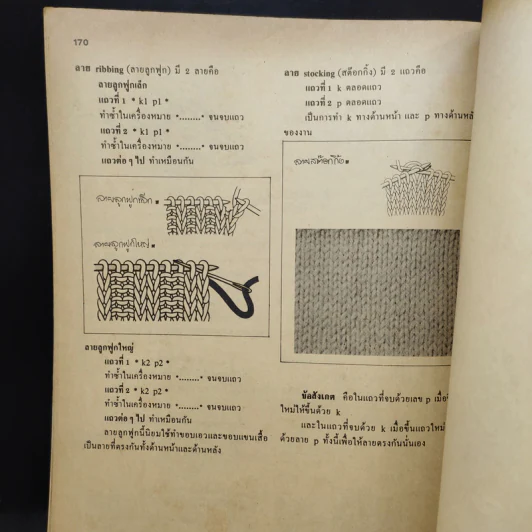 170
ลาย ribbing (ลายลูกฟูก) มี 2 ลายคือ
ลายลูกฟูกเล็ก
แถวที่ 1 * k1 p1 *
ทำซ้ำในเครื่องหมาย *........* จนจบแถว
แถวที่ 2 * k1 p1 *
ทำซ้ำในเครื่องหมาย *........* จนจบแถว
แถวต่อ ๆ ไป ทำเหมือนกัน
ลายลูกฟูกเล็ก
ลายลูกฟูกใหญ่
ลายลูกฟูกใหญ่
แถวที่ 1 * k2 p2 *
ทำซ้ำในเครื่องหมาย *........* จนจบแถว
แถวที่ 2 * k2 p2 *
ทำซ้ำในเครื่องหมาย *........* จนจบแถว
แถวต่อ ๆ ไป ทำเหมือนกัน
ลายลูกฟูกนี้นิยมใช้ทำขอบเอวและขอบแขนเสื้อ
เป็นลายที่ตรงกันทั้งด้านหน้าและด้านหลัง
ลาย stocking (สต๊อกกิ้ง) มี 2 แถวคือ
แถวที่ 1 k ตลอดแถว
แถวที่ 2 p ตลอดแถว
เป็นการทำ k ทางด้านหน้า และ p ทางด้านหลั
ของงาน
ลายสต๊อกกิ้ง
ข้อสังเกต คือในแถวที่จบด้วยเลข p เมื่อ
ใหม่ให้ขึ้นด้วย k
และในแถวที่จบด้วย k เมื่อขึ้นแถวใหม่
ด้วยลาย p ทั้งนี้เพื่อให้ลายตรงกันนั่นเอง